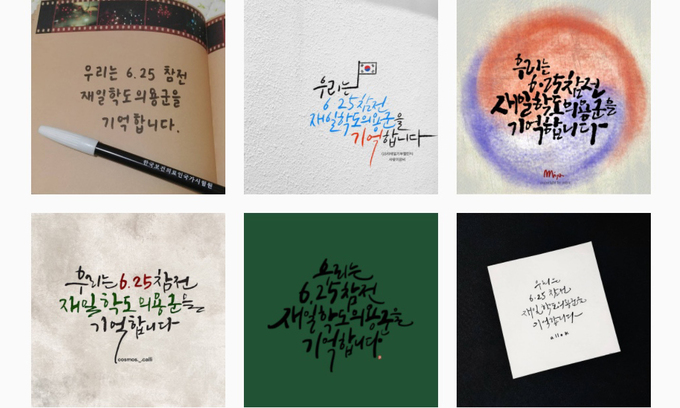 우리는 6.25 참전
재일학도의용군을
기억합니다.
우리는
6.25참전
재일학도의용군을
기억합니다
우리는
6.25참전
재일학도의용군을
기억합니다
우리는 6.25참전
재일학도의용군을
기억합니다
cosmos._.calli
우리는
6.25참전
재일학도의용군을
기억합니다
우리는
6.25 참전
재일학도의용군을
기억합니다